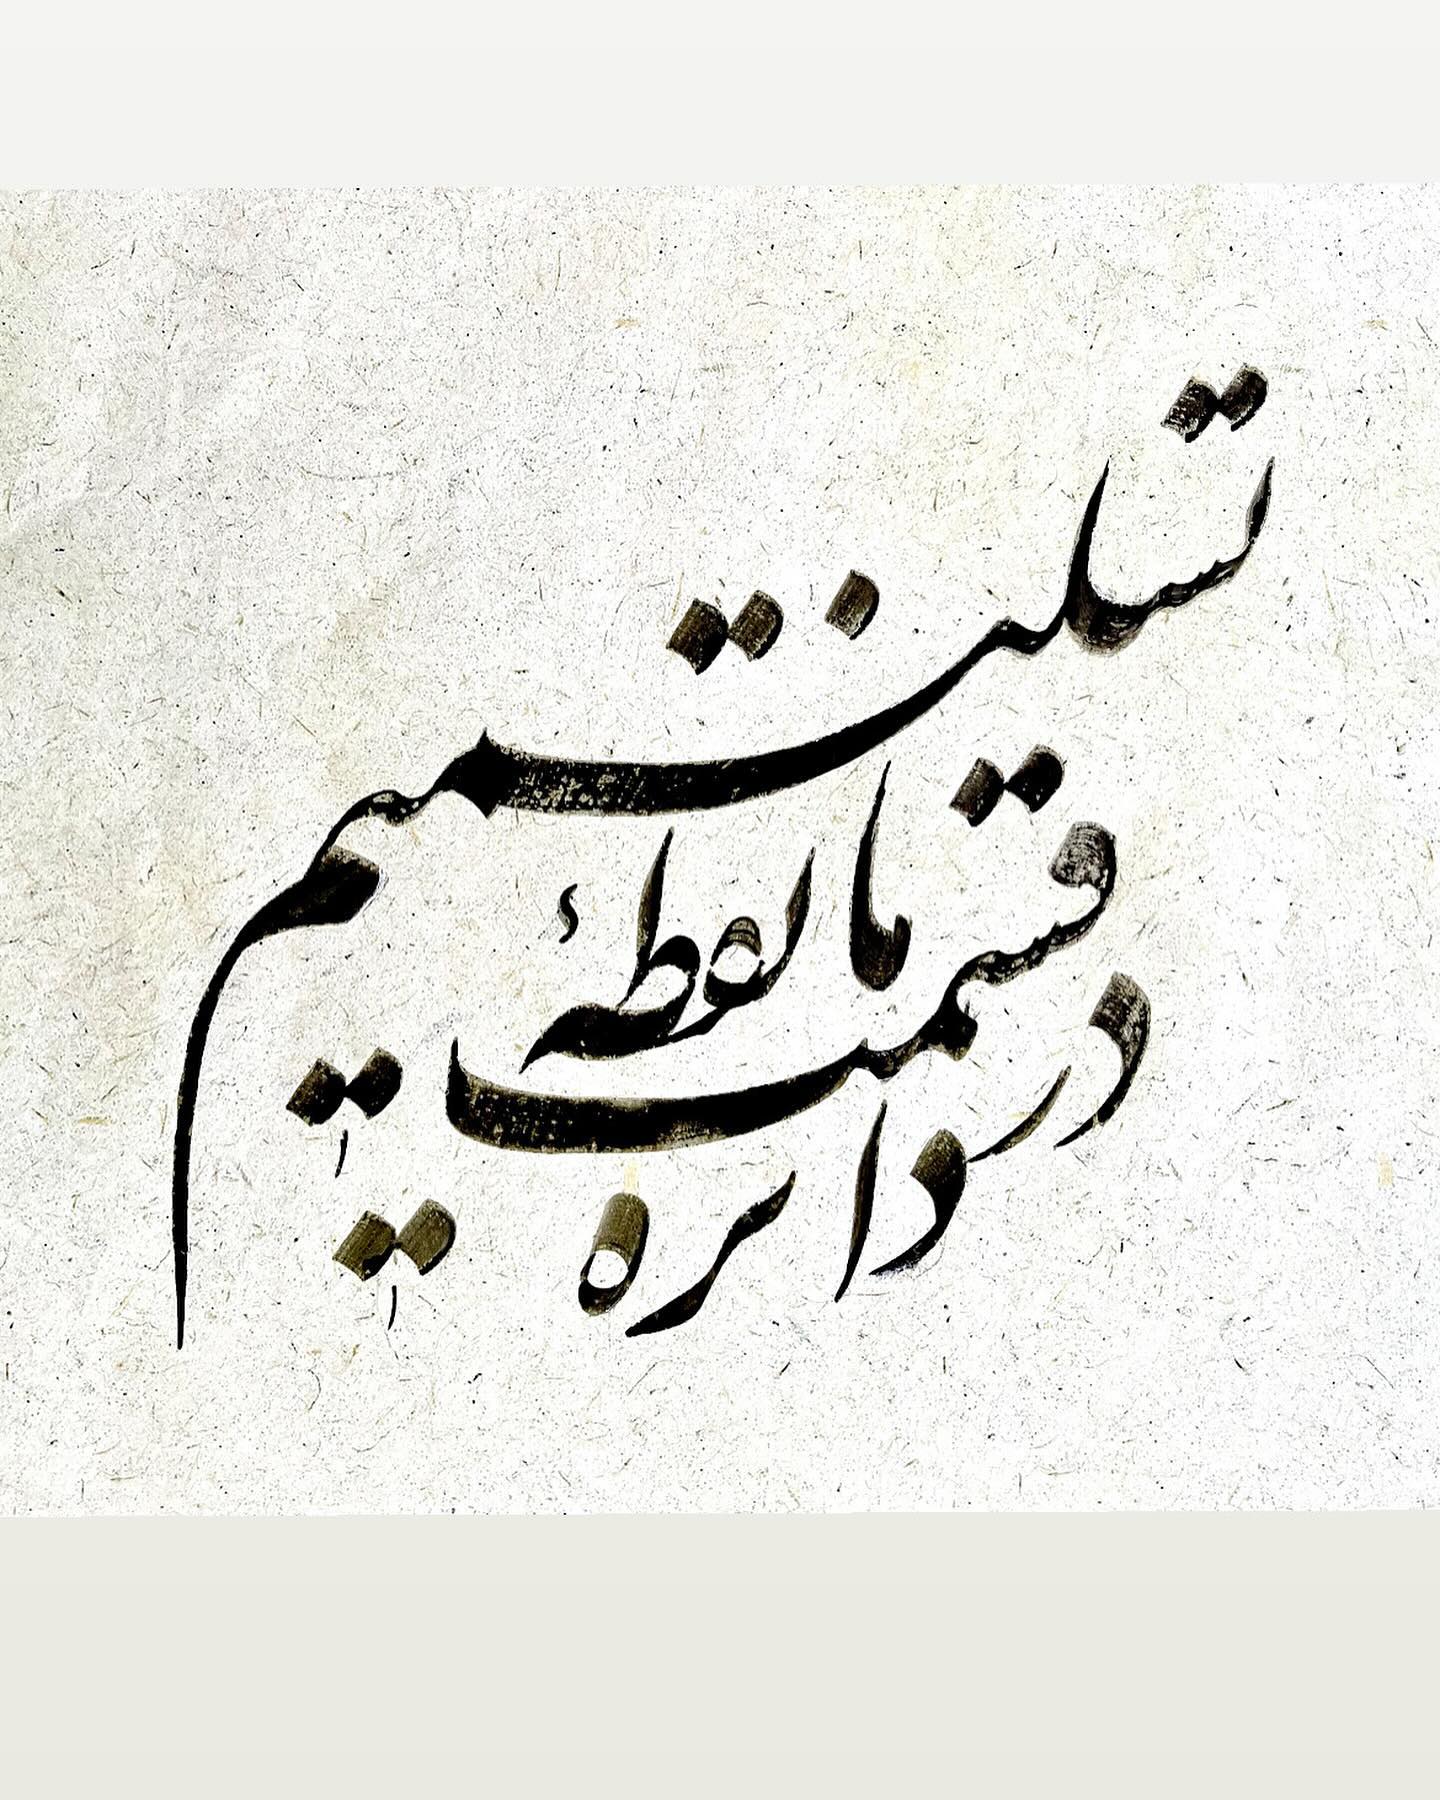 در دایره
قسمت ما نقطهٔ
تسلیمیم